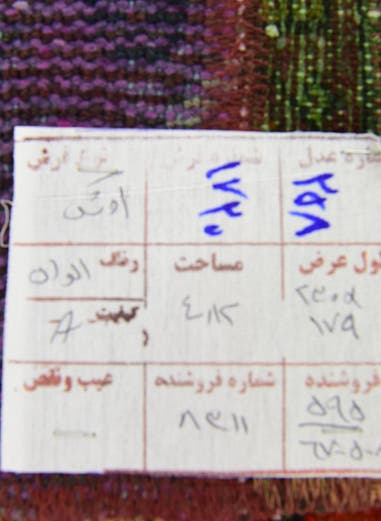 شماره عدل شماره فرش نوع فرش
۲۵۸ ۱۷۲۰
طول عرض مساحت رنگ الوان
۱۷۹ ۴،۱۲ کیفیت A
فروشنده شماره فروشنده عیب و نقص
۵۹۵ ۸۳۱۱ —